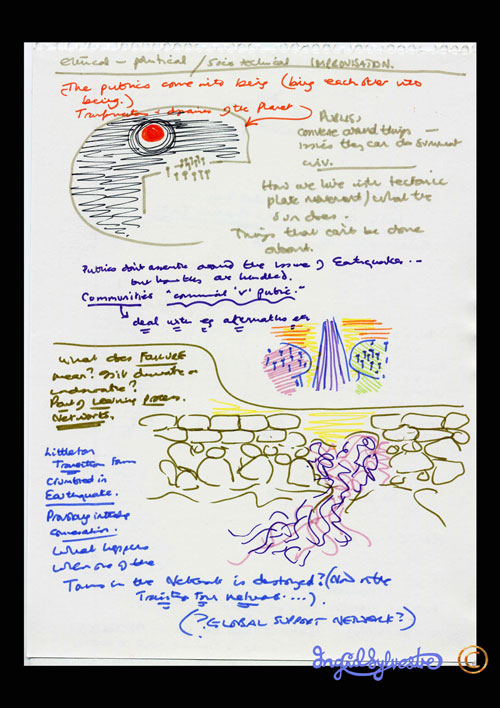 ethical - political / socio technical IMPROVISATION.
(The publics come into being (bring each other into
being.)
of the Planet
PUBLICS,
convene around things —
issues they can do somewhat
How we live with tectonic
plate movement / what the
sun does.
Things that can't be done
about.
Publics don't assemble around the issue of Earthquakes --
but how they are handled.
Communities "communal 'v' public."
deal with eg alternatives eg
What does FAILURE
mean? Still dominate or
underwrite?
Part of Learning Process.
Networks.
Littleton
Transition Town
crumbled in
Earthquake.
conversation.
What happens
when one of the
Towns in the Network is destroyed? (Now in the
Transition Town network ....).
(? GLOBAL SUPPORT NETWORK?)
Ingrid Sylvestre ©